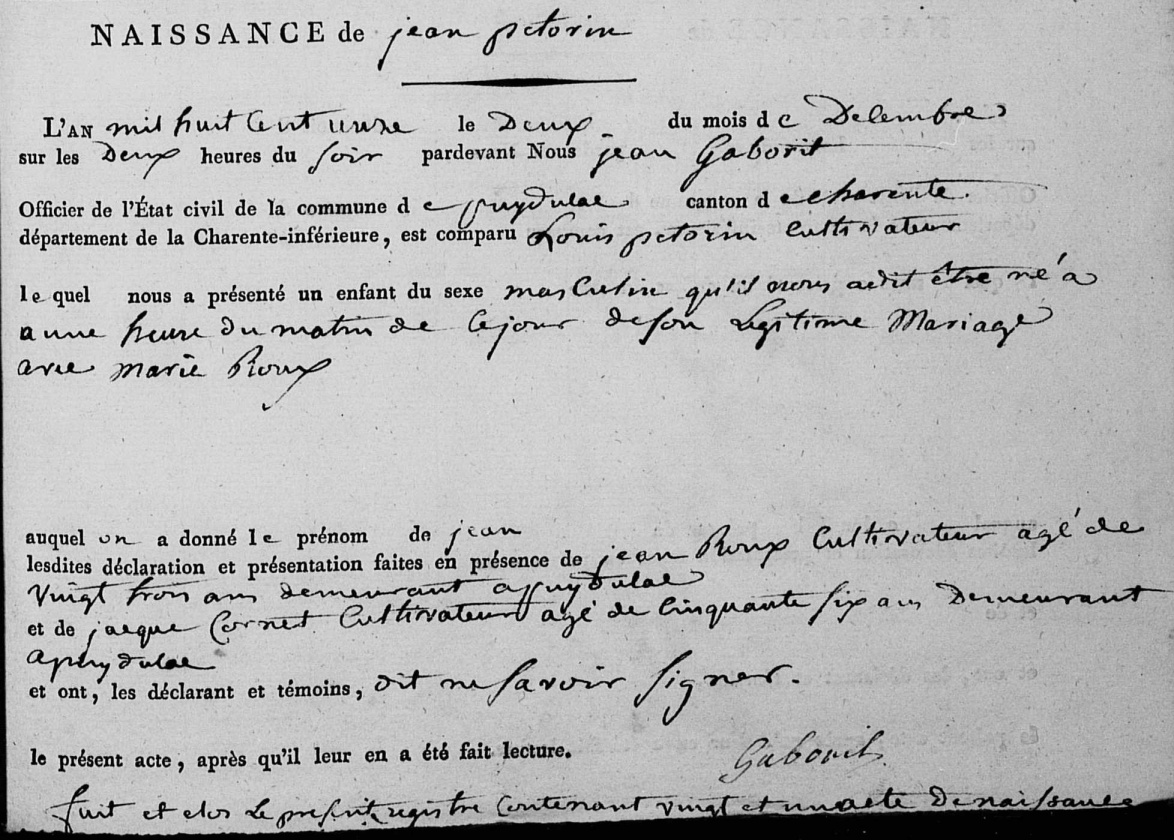 NAISSANCE de jean petorin
L'AN mil huit Cent unze le Deux du mois de Decembre
sur les Deux heures du soir pardevant Nous jean Gaborit
Officier de l'État civil de la commune de puydulac canton de charente.
département de la Charente-inférieure, est comparu Louis petorin Cultivateur
lequel nous a présenté un enfant du sexe masculin qu'il nous adit être né a
a une heure du matin de ce jour de son Legitime Mariage
avec marie Roux
auquel on a donné le prénom de jean
lesdites déclaration et présentation faites en présence de jean Roux Cultivateur agé de
vingt trois ans demeurant a puydulac
et de jacque Cornet Cultivateur agé de Cinquante six ans Demeurant
a puydulac
et ont, les déclarant et témoins, dit ne savoir signer.
le présent acte, après qu'il leur en a été fait lecture.
Gaborit
fait et clos Le present registre Contenant vingt et un acte De naissance